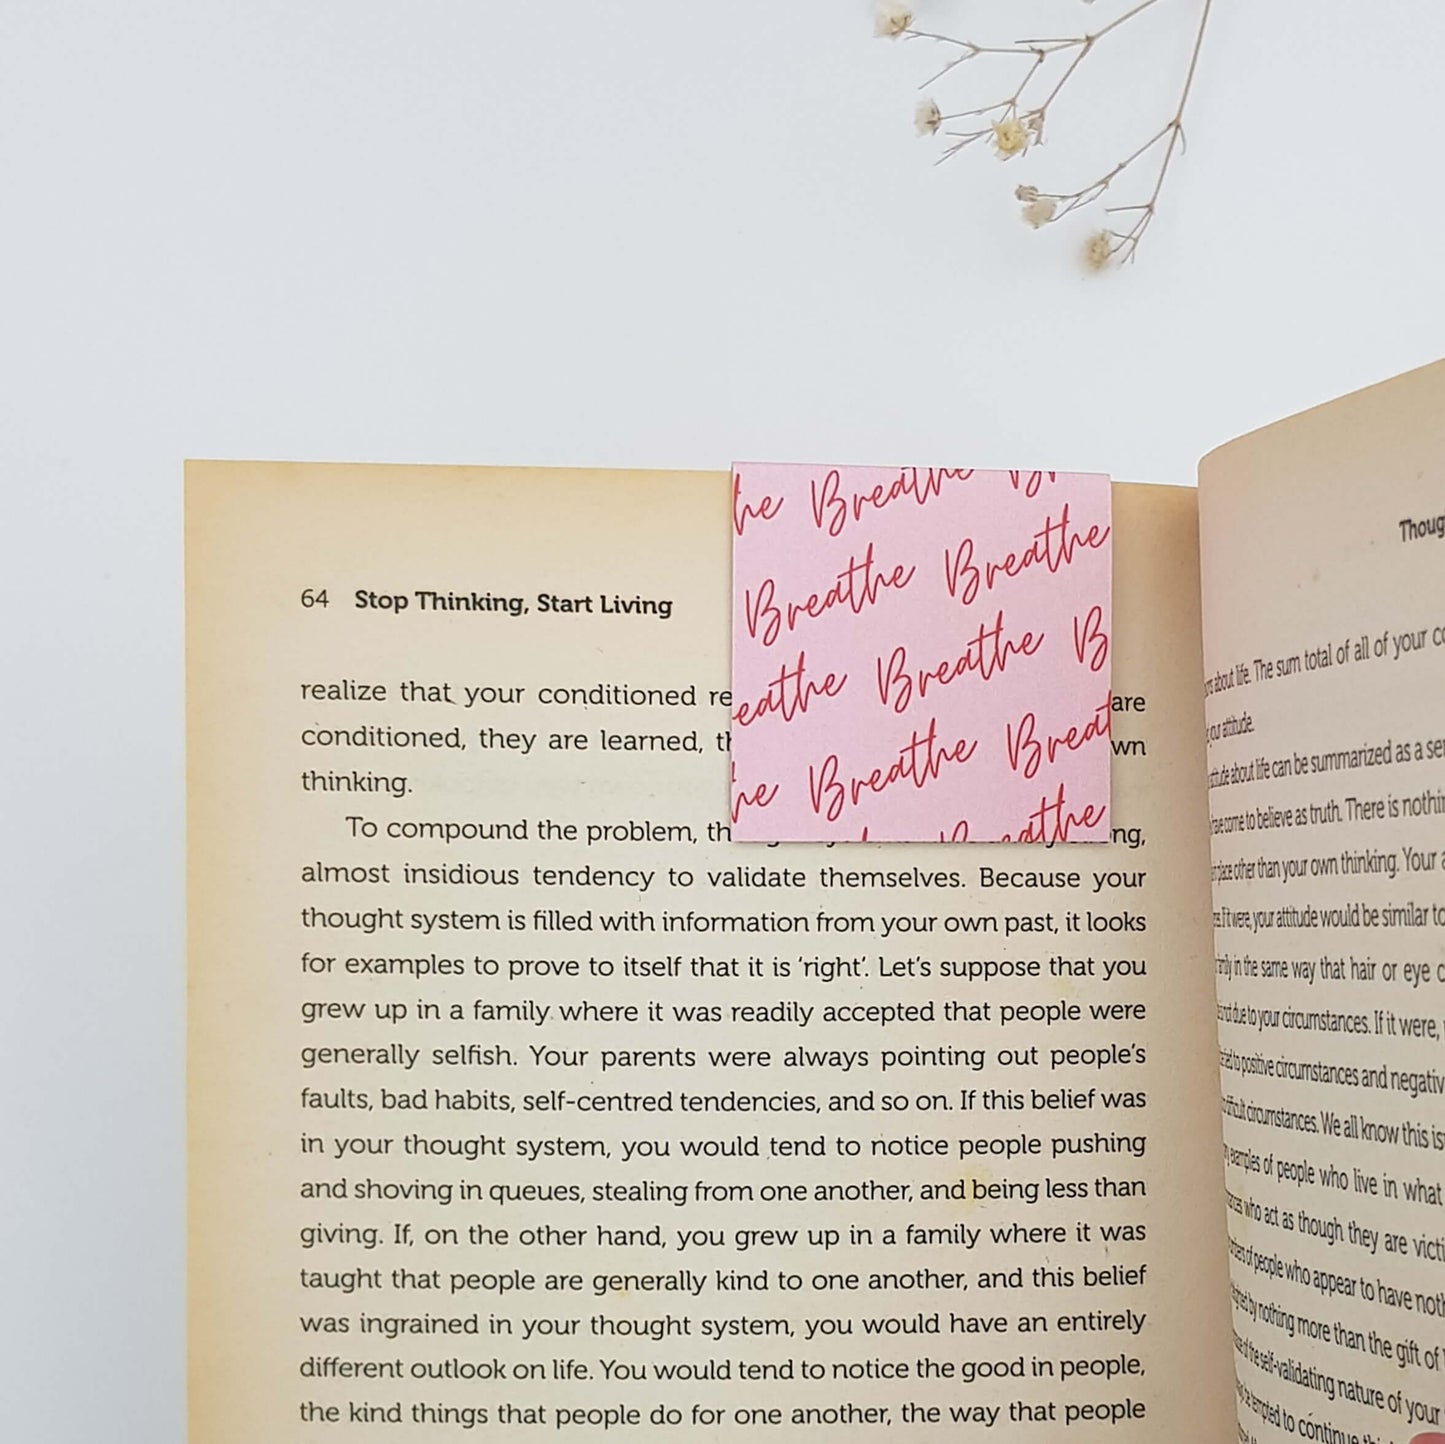 64 Stop Thinking, Start Living
realize that your conditioned are
conditioned, they are learned,
thinking.
To compound the problem,
almost insidious tendency to validate themselves. Because your
thought system is filled with information from your own past, it looks
for examples to prove to itself that it is ‘right’. Let’s suppose that you
grew up in a family where it was readily accepted that people were
generally selfish. Your parents were always pointing out people’s
faults, bad habits, self-centred tendencies, and so on. If this belief was
in your thought system, you would tend to notice people pushing
and shoving in queues, stealing from one another, and being less than
giving. If, on the other hand, you grew up in a family where it was
taught that people are generally kind to one another, and this belief
was ingrained in your thought system, you would have an entirely
different outlook on life. You would tend to notice the good in people,
the kind things that people do for one another, the way that people
Breathe
Breathe Breathe
Breathe B
Breathe Breat
about life. The sum total of all of your
your attitude.
about life can be summarized as a
come to believe as truth. There is
place other than your own thinking. Your
If it were, your attitude would be similar to
in the same way that hair or eye
not due to your circumstances. If it were,
to positive circumstances and
difficult circumstances. We all know this
examples of people who live in what
who act as though they are
of people who appear to have
by nothing more than the gift of
of the self-validating nature of your
be tempted to continue